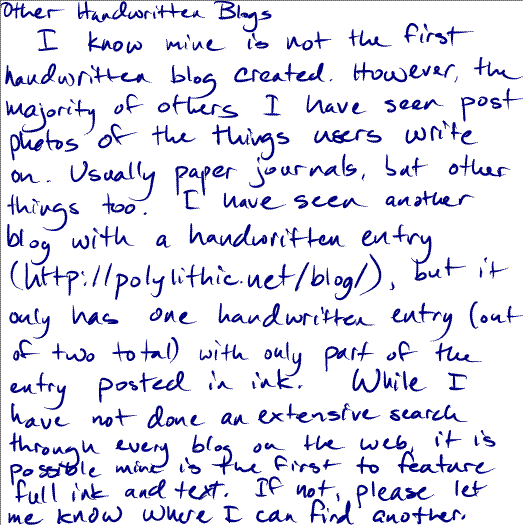 Other Handwritten Blogs
I know mine is not the first
handwritten blog created. However, the
majority of others I have seen post
photos of the things users write
on. Usually paper journals, but other
things too. I have seen another
blog with a handwritten entry
(http://polylithic.net/blog/), but it
only has one handwritten entry (out
of two total) with only part of the
entry posted in ink. While I
have not done an extensive search
through every blog on the web, it is
possible mine is the first to feature
full ink and text. If not, please let
me know where I can find another.